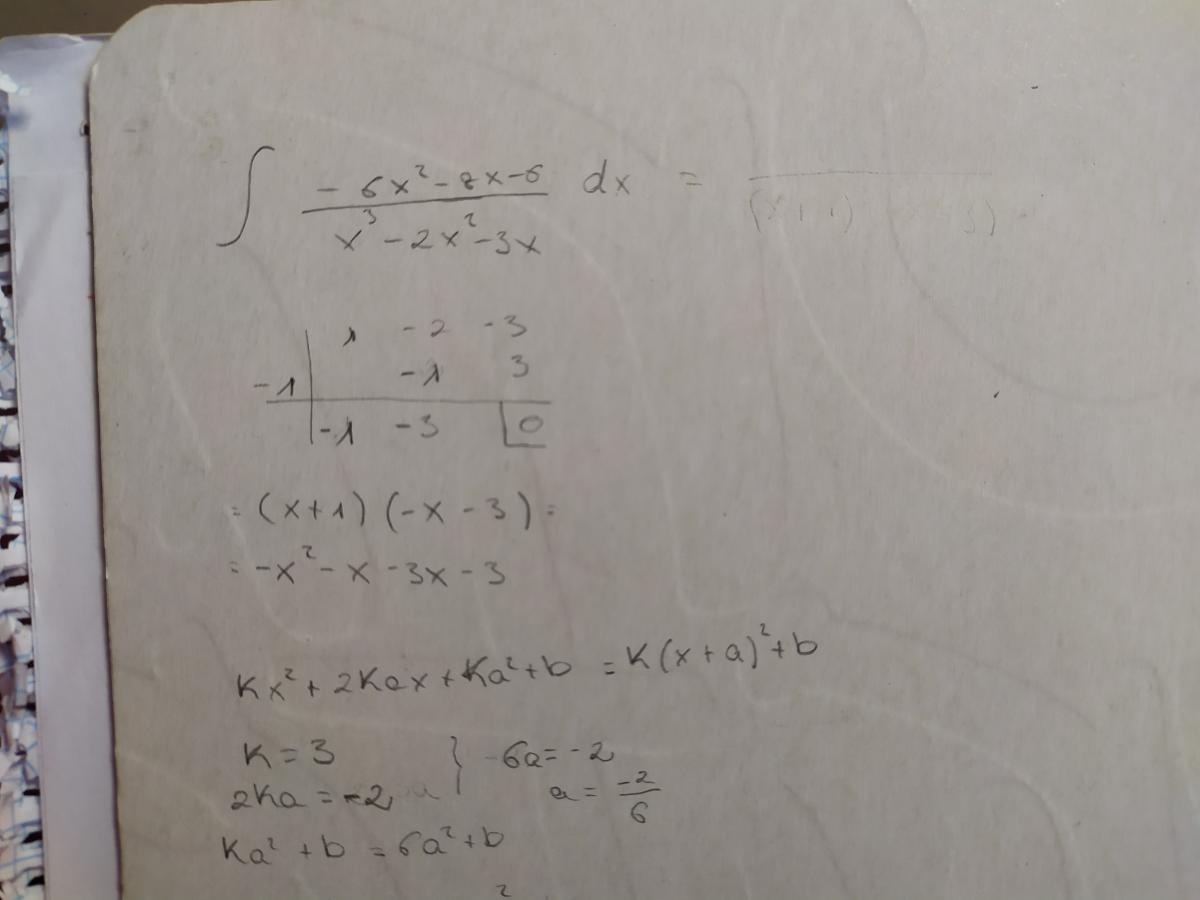 ∫ (-6x² - 8x - 6)/(x³ - 2x² - 3x) dx =
(x+1) 3)
1 -2 -3
-1 | -1 3
-1 -3 | 0
= (x+1) (-x - 3) =
= -x² - x - 3x - 3
Kx² + 2Kax + Ka² + b = K(x+a)² + b
K = 3 } -6a = -2
2Ka = -2 a = -2/6
Ka² + b = 6a² + b
2